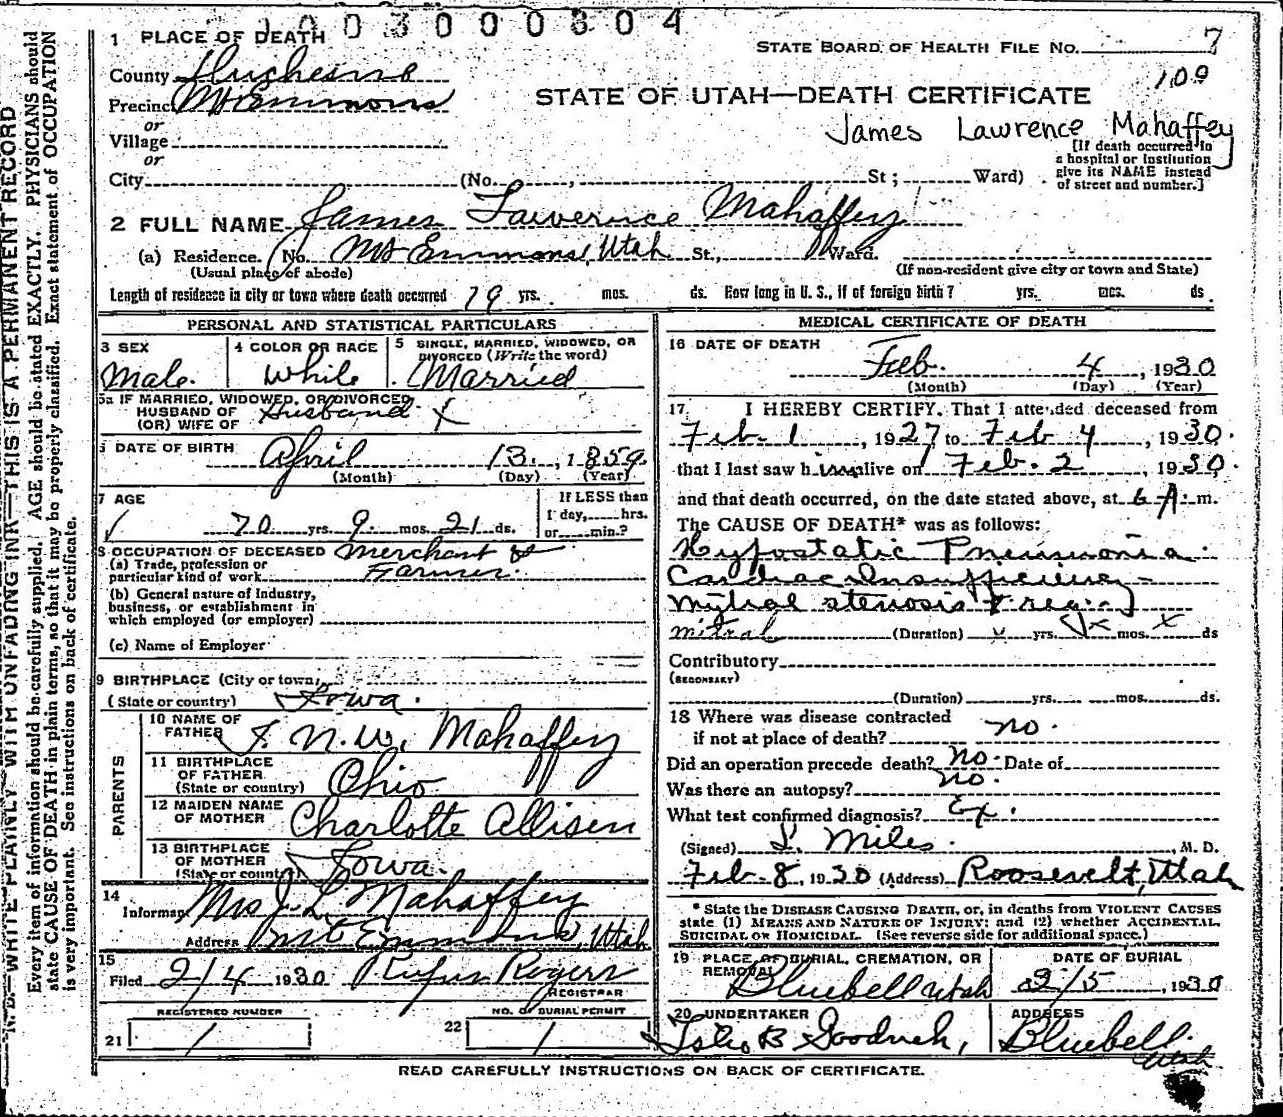 1003000304
1 PLACE OF DEATH
STATE BOARD OF HEALTH FILE NO. 7
County Duchesne
109
Precinct Mt Emmons
STATE OF UTAH—DEATH CERTIFICATE
or
James Lawrence Mahaffey
Village
[If death occurred in
a hospital or institution
give its NAME instead
of street and number.]
or
City (No. , St ; Ward)
2 FULL NAME James Lawerence Mahaffey
(a) Residence. (No. Mt Emmons, Utah St., Ward.
(Usual place of abode) (If non-resident give city or town and State)
Length of residence in city or town where death occurred 19 yrs. mos. ds. How long in U. S., if of foreign birth? yrs. mos. ds.
PERSONAL AND STATISTICAL PARTICULARS
3 SEX
Male
4 COLOR OR RACE
White
5 SINGLE, MARRIED, WIDOWED, OR
DIVORCED (Write the word)
Married
5a IF MARRIED, WIDOWED, OR DIVORCED
HUSBAND OF Husband X
(OR) WIFE OF
6 DATE OF BIRTH April 13, 1859
(Month) (Day) (Year)
7 AGE
70 yrs. 9 mos. 21 ds.
If LESS than
1 day, hrs.
or min.?
8 OCCUPATION OF DECEASED Merchant &
(a) Trade, profession or
particular kind of work Farmer.
(b) General nature of industry,
business, or establishment in
which employed (or employer)
(c) Name of Employer
9 BIRTHPLACE (City or town)
(State or country) Iowa.
PARENTS
10 NAME OF
FATHER N. W. Mahaffey
11 BIRTHPLACE
OF FATHER
(State or country) Ohio
12 MAIDEN NAME
OF MOTHER Charlotte Allisen
13 BIRTHPLACE
OF MOTHER
(State or country) Iowa.
14
Informant Mrs J. L. Mahaffey
Address Mt Emmons, Utah
15
Filed 2/4 1930 Rufus Rogers
REGISTRAR
REGISTERED NUMBER
21 1
NO. OF BURIAL PERMIT
22 1
MEDICAL CERTIFICATE OF DEATH
16 DATE OF DEATH
Feb. 4, 1930
(Month) (Day) (Year)
17 I HEREBY CERTIFY, That I attended deceased from
Feb. 1, 1927 to Feb 4, 1930.
that I last saw him alive on Feb. 2, 1930.
and that death occurred, on the date stated above, at 6 A. m.
The CAUSE OF DEATH* was as follows:
Hypostatic Pneumonia
Cardiac Insufficiency -
Mytral stenosis & reg.
mitral (Duration) yrs. mos. x ds
Contributory
(SECONDARY)
(Duration) yrs. mos. ds.
18 Where was disease contracted
if not at place of death? no.
Did an operation precede death? no. Date of
Was there an autopsy? no.
What test confirmed diagnosis? Ex.
(Signed) Miles. , M. D.
Feb-8, 1930 (Address) Roosevelt, Utah
* State the DISEASE CAUSING DEATH, or, in deaths from VIOLENT CAUSES
state (1) MEANS AND NATURE OF INJURY; and (2) whether ACCIDENTAL,
SUICIDAL OR HOMICIDAL. (See reverse side for additional space.)
19 PLACE OF BURIAL, CREMATION, OR
REMOVAL
Bluebell Utah
DATE OF BURIAL
2/5, 1930
20 UNDERTAKER
B Goodrich,
ADDRESS
Bluebell.
Utah
READ CAREFULLY INSTRUCTIONS ON BACK OF CERTIFICATE.
N. B.—WRITE PLAINLY WITH UNFADING INK—THIS IS A PERMANENT RECORD
Every item of information should be carefully supplied. AGE should be stated EXACTLY. PHYSICIANS should
state CAUSE OF DEATH in plain terms, so that it may be properly classified. Exact statement of OCCUPATION
is very important. See instructions on back of certificate.